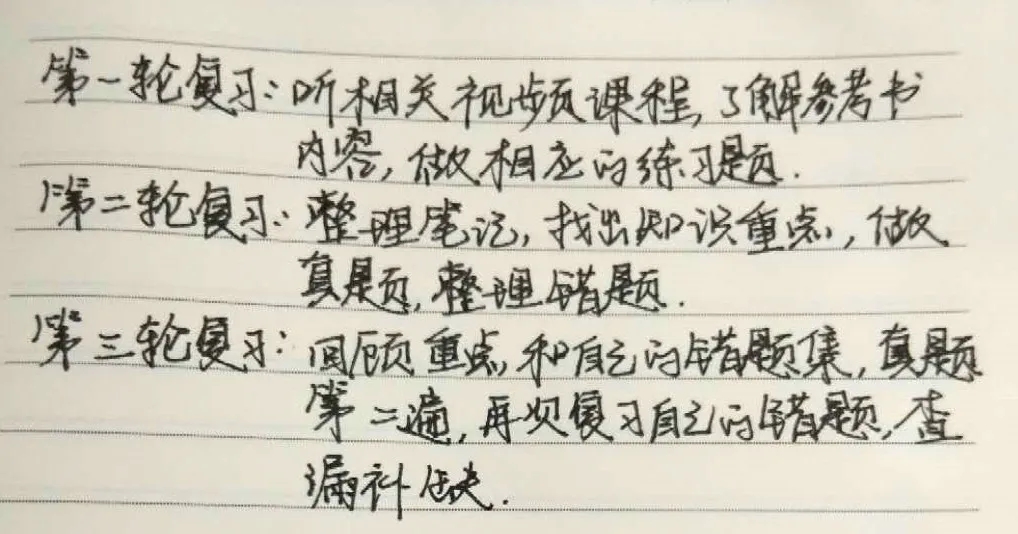 第一轮复习：听相关视频课程，了解参考书
内容，做相应的练习题.
第二轮复习：整理笔记，找出知识重点，做
真题，整理错题.
第三轮复习：回顾重点和自己的错题集，真题
第二遍，再次复习自己的错题，查
漏补缺.